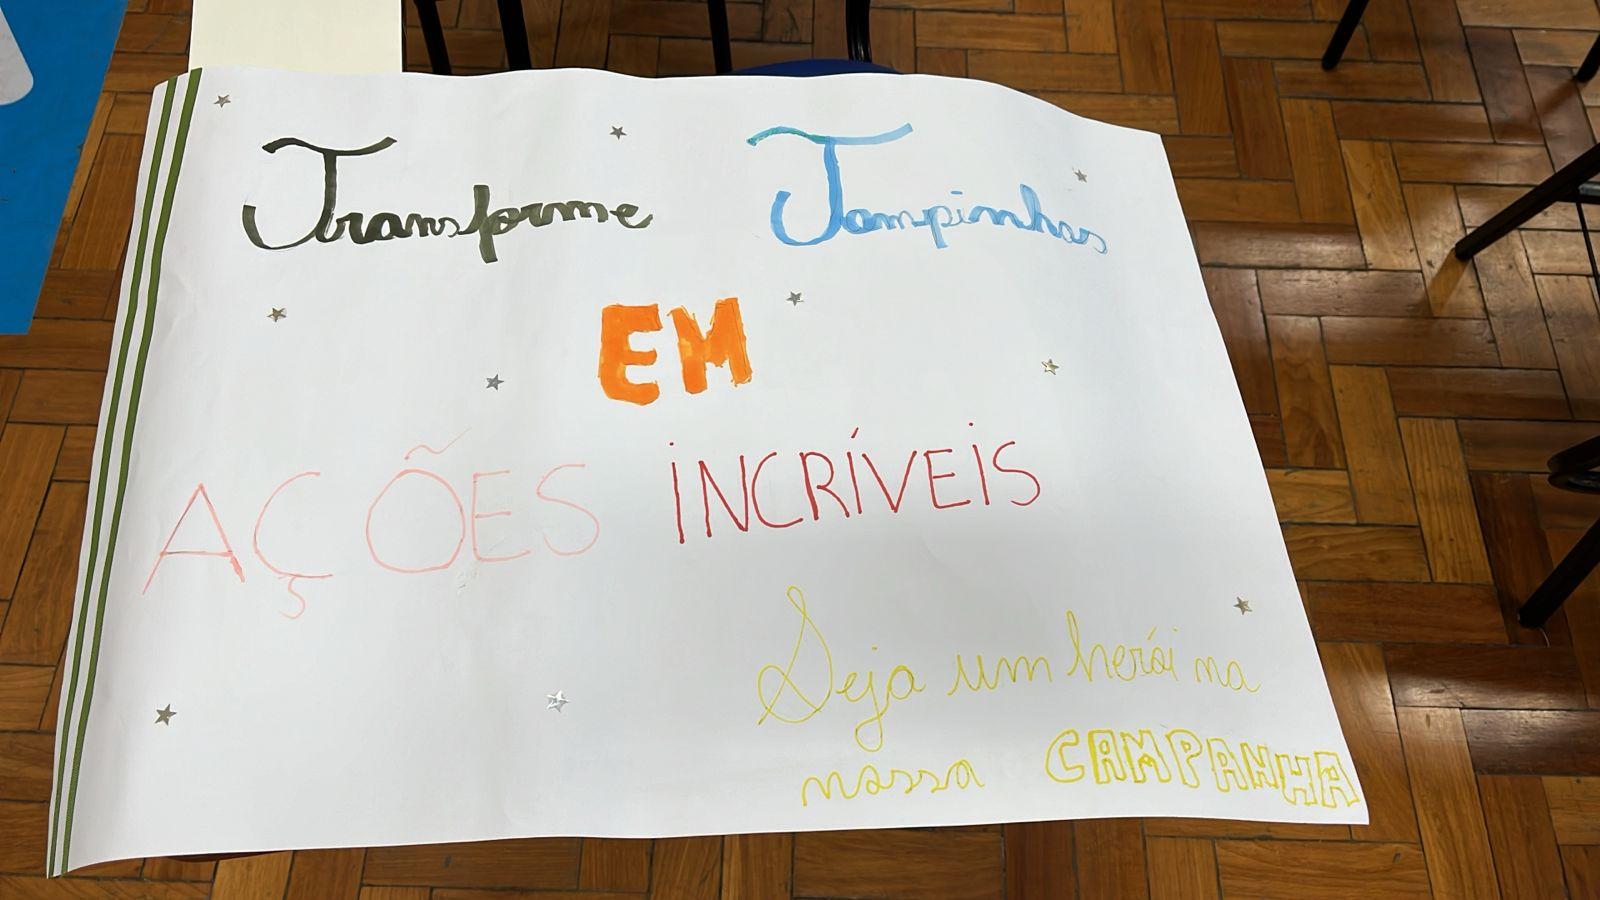 Transforme Tampinhas
EM
AÇÕES INCRÍVEIS
Seja um herói na
nossa CAMPANHA